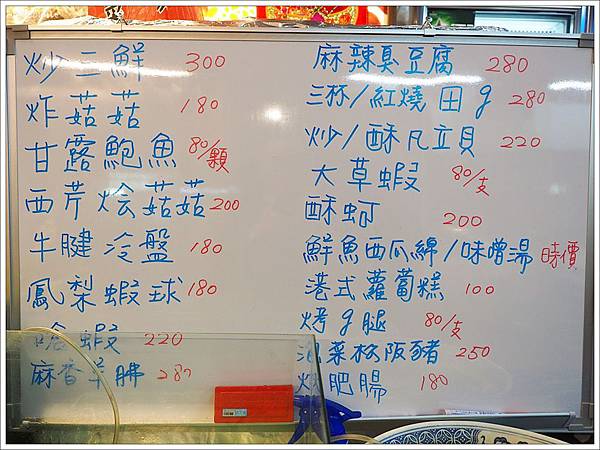 炒三鮮 300
炸菇菇 180
甘露鮑魚 80/顆
西芹燴菇菇 200
牛腱冷盤 180
鳳梨蝦球 180
嗆蝦 220
麻香羊腩 28
麻辣臭豆腐 280
三杯/紅燒田g 280
炒/酥凡立貝 220
大草蝦 80/支
酥蚵 200
鮮魚西瓜綿/味噌湯 時價
港式蘿蔔糕 100
烤g腿 80/支
菜松阪豬 250
肥腸 180